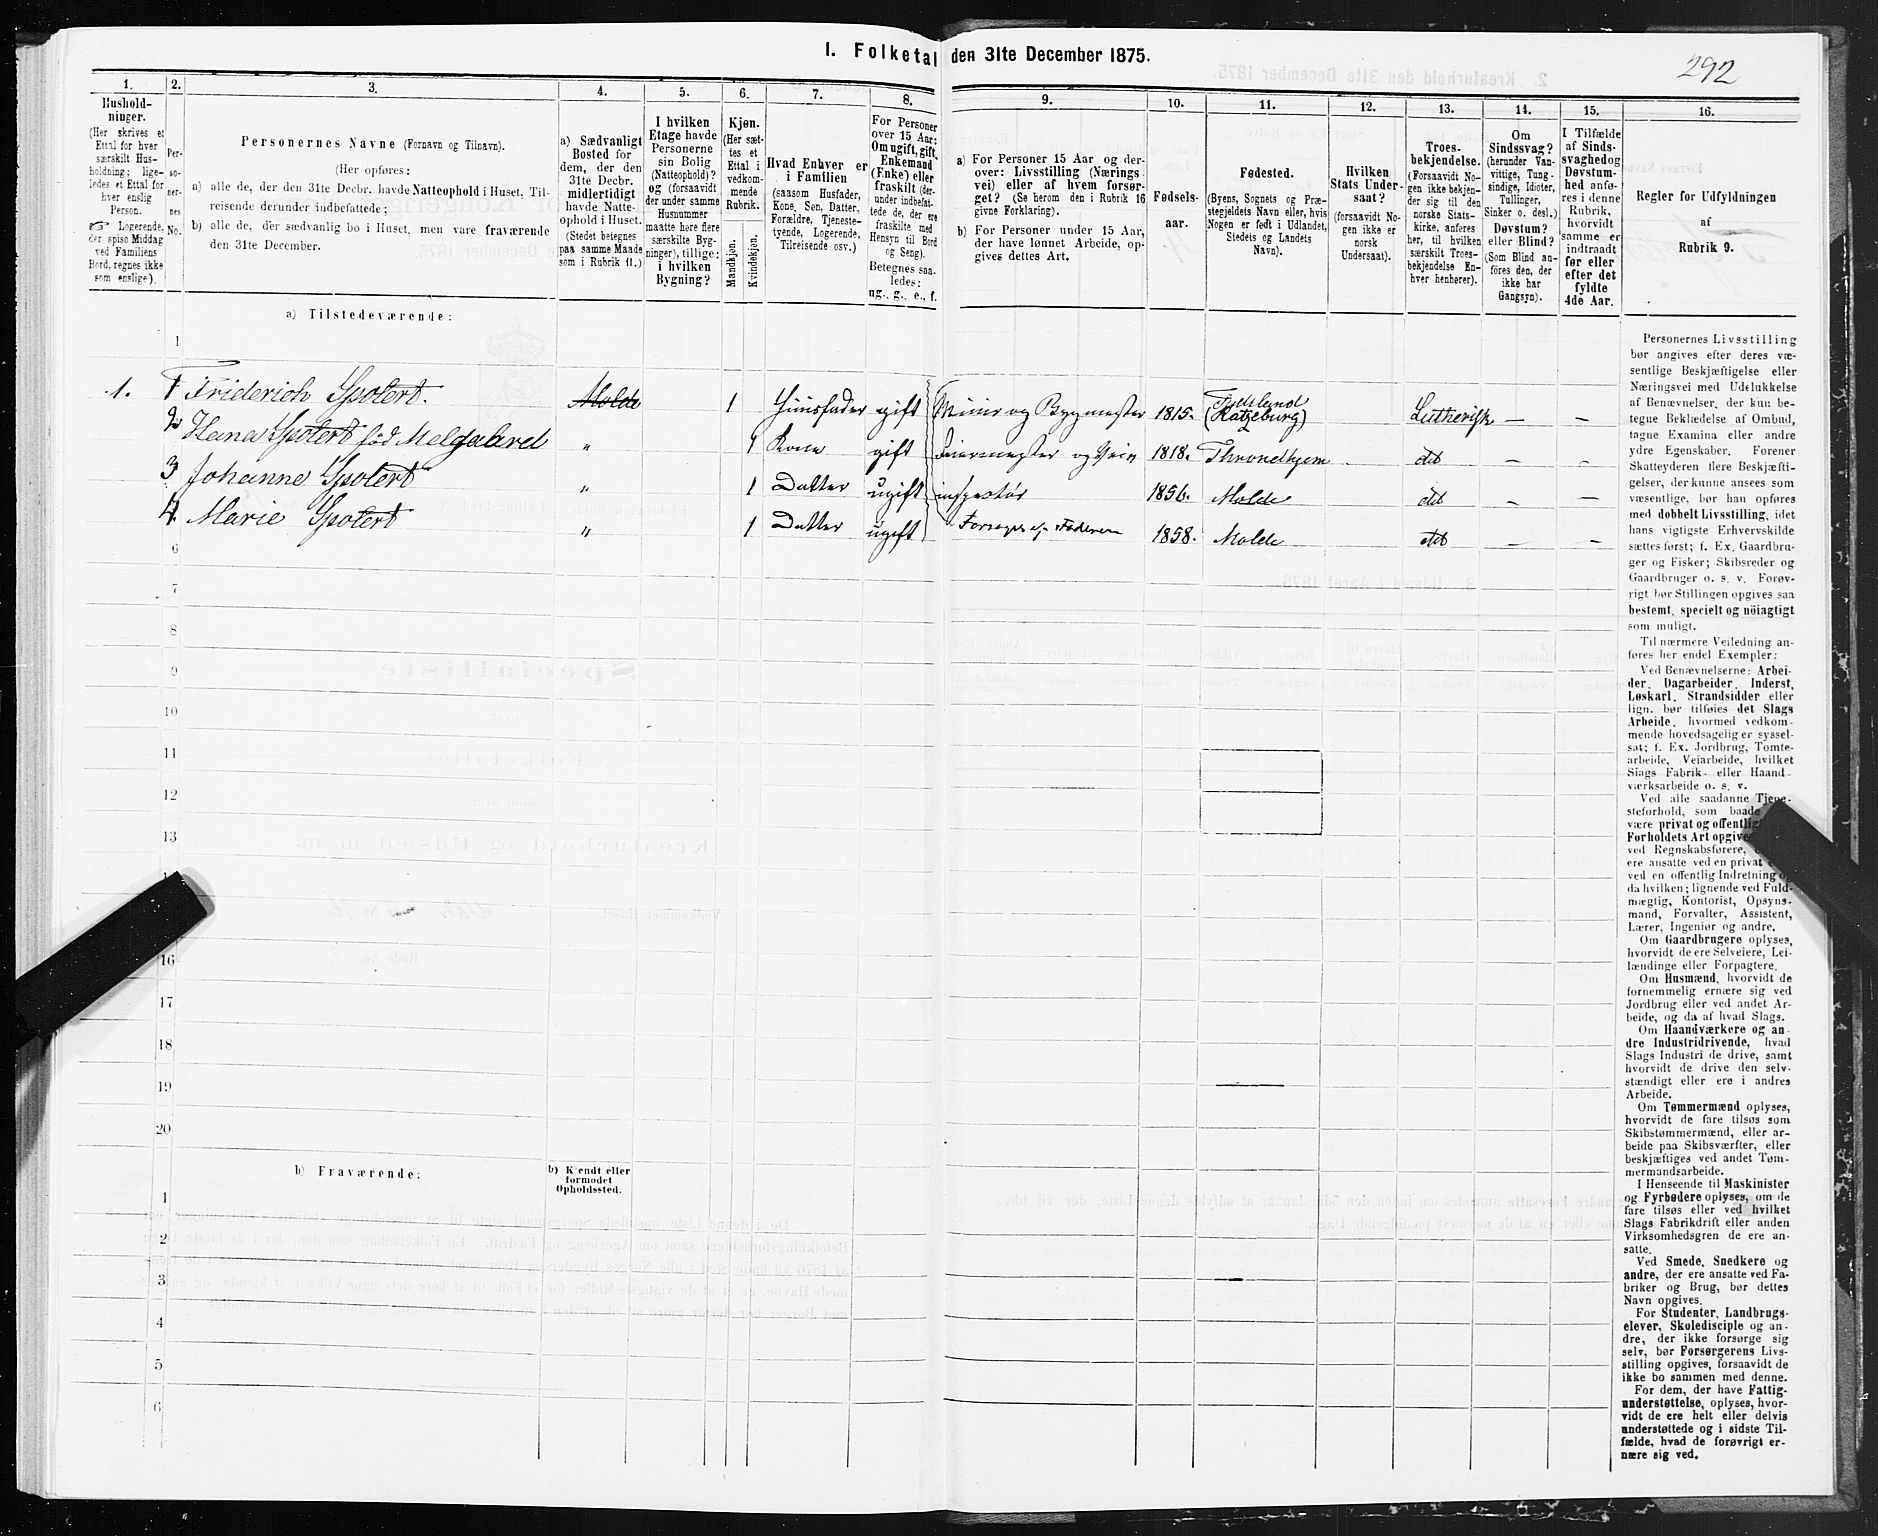 1. Folketal den 31te December 1875.
292
1.
Hushold-
ninger.
(Her skrives et
Ettal for hver
særskilt Hus-
holdning; lige-
ledes et Ettal for
hver enslig
Person.
Logerende,
der spise Middag
ved Familiens
Bord, regnes ikke
som enslige).
2.
Per-
so-
ner-
nes
No.
3.
Personernes Navne (Fornavn og Tilnavn).
(Her opføres:
a) alle de, der den 31te Decbr. havde Natteophold i Huset, Til-
reisende derunder indbefattede;
b) alle de, der sædvanlig bo i Huset, men vare fraværende
den 31te December.
4.
a) Sædvanligt
Bosted for
dem, der den
31te Decbr.
midlertidigt
havde Natte-
ophold i Huset.
(Stedet betegnes
paa samme Maade
som i Rubrik 11.)
5.
I hvilken
Etage havde
Personerne
sin Bolig
(Natteophold)?
og (forsaavidt
der under samme
Husnummer
maatte høre flere
særskilte Byg-
ninger), tillige:
i hvilken
Bygning?
6.
Kjøn.
(Her sæt-
tes et
Ettal i
vedkom-
mende
Rubrik.
Mandkjøn.
Kvindekjøn.
7.
Hvad Enhver er
i Familien
(saasom Husfader,
Kone, Søn, Datter,
Forældre, Tjeneste-
tyende, Logerende,
Tilreisende osv.)
8.
For Personer
over 15 Aar:
Om ugift, gift,
Enkemand
(Enke) eller
fraskilt (der-
under indbefat-
tede de, der ere
fraskilte med
Hensyn til Bord
og Seng).
Betegnes saa-
ledes:
ug., g., e., f.
9.
a) For Personer 15 Aar og der-
over: Livsstilling (Nærings-
vei) eller af hvem forsør-
get? (Se herom den i Rubrik 16
givne Forklaring).
b) For Personer under 15 Aar,
der have lønnet Arbeide, op-
gives dettes Art.
10.
Fødsels-
aar.
11.
Fødested.
(Byens, Sognets og Præ-
stegjeldets Navn eller, hvis
Nogen er født i Udlandet,
Stedets og Landets
Navn).
12.
Hvilken
Stats Under-
saat?
(forsaavidt No-
gen ikke er
norsk
Undersaat).
13.
Troes-
bekjendelse.
(Forsaavidt No-
gen ikke bekjen-
der sig til den
norske Stats-
kirke, anføres
her, til hvilken
særskilt Troes-
bekjendelse En-
hver henhører).
14.
Om
Sindssvag?
(herunder Van-
vittige, Tung-
sindige, Idioter,
Tullinger,
Sinker o. desl.)
Døvstum?
eller Blind?
(Som Blind an-
føres den, der
ikke har
Gangsyn).
15.
I Tilfælde
af Sinds-
svaghed og
Døvstum-
hed anfø-
res i denne
Rubrik,
hvorvidt
samme er
indtraadt
før eller
efter det
fyldte
4de Aar.
16.
Regler for Udfyldningen
af
Rubrik 9.
a) Tilstedeværende:
1
1. 1 Friderich Spolert. Molde 1 Huusfader gift Muur og Bygmester 1815. Tydskland (Ratzeburg) Lutherisk — —
2 Hana Spolert fød Melgalvrel " 1 Kone gift Feiermester og 1818. Throndhjem det — —
3 Johanne Spolert " 1 Datter ugift inspektør 1856. Molde det — —
4 Marie Spolert " 1 Datter ugift Forsørges af Faderen 1858. Molde det — —
6
7
8
9
10
11
12
13
16
17
18
19
20
b) Fraværende:
b) Kjendt eller
formodet
Opholdssted.
1
2
3
4
5
6
Personernes Livsstilling
bør angives efter deres væ-
sentlige Beskjæftigelse eller
Næringsvei med Udelukkelse
af Benævnelser, der kun be-
tegne Beklædelse af Ombud,
tagne Examina eller andre
ydre Egenskaber. Forener
Skatteyderen flere Beskjæfti-
gelser, der kunne ansees som
væsentlige, bør han opføres
med dobbelt Livsstilling, idet
hans vigtigste Erhvervskilde
sættes først; f. Ex. Gaardbru-
ger og Fisker; Skibsreder og
Gaardbruger o. s. v. Forøv-
rigt bør Stillingen opgives saa
bestemt, specielt og nöiagtigt
som muligt.
Til nærmere Veiledning an-
føres her endel Exempler:
Ved Benævnelserne: Arbei-
der, Dagarbeider, Inderst,
Løskarl, Strandsidder eller
lign. bør tilføies det Slags
Arbeide, hvormed vedkom-
mende hovedsagelig er syssel-
sat; f. Ex. Jordbrug, Tomte-
arbeide, Veiarbeide, hvilket
Slags Fabrik- eller Haand-
værksarbeide o. s. v.
Ved alle saadanne Tjene-
steforhold, som baade
være privat og offentlig
Forholdets Art opgives
ved Regnskabsførere,
ere ansatte ved en privat
ved en offentlig Indretning og
da hvilken; lignende ved Fuld-
mægtig, Kontorist, Opsyns-
mand, Forvalter, Assistent,
Lærer, Ingeniør og andre.
Om Gaardbrugere oplyses,
hvorvidt de ere Selveiere, Lei-
lændinge eller Forpagtere.
Om Husmænd, hvorvidt de
fornemmelig ernære sig ved
Jordbrug eller ved andet Ar-
beide, og da af hvad Slags.
Om Haandværkere og an-
dre Industridrivende, hvad
Slags Industri de drive, samt
hvorvidt de drive den selv-
stændigt eller ere i andres
Arbeide.
Om Tømmermænd oplyses,
hvorvidt de fare tilsøs som
Skibstømmermænd, eller ar-
beide paa Skibsværfter, eller
beskjæftiges ved andet Tøm-
mermandsarbeide.
I Henseende til Maskinister
og Fyrbødere oplyses, om de
fare tilsøs eller ved hvilket
Slags Fabrikdrift eller anden
Virksomhedsgren de ere an-
satte.
Ved Smede, Snedkere og
andre, der ere ansatte ved Fa-
briker og Brug, bør dettes
Navn opgives.
For Studenter, Landbrugs-
elever, Skoledisciple og an-
dre, der ikke forsørge sig
selv, bør Forsørgerens Livs-
stilling opgives, forsaavidt de
ikke bo sammen med denne.
For dem, der have Fattig-
understøttelse, oplyses, hvor-
vidt de ere helt eller delvis
understøttede og i sidste Til-
fælde, hvad de forøvrigt er-
nære sig ved.